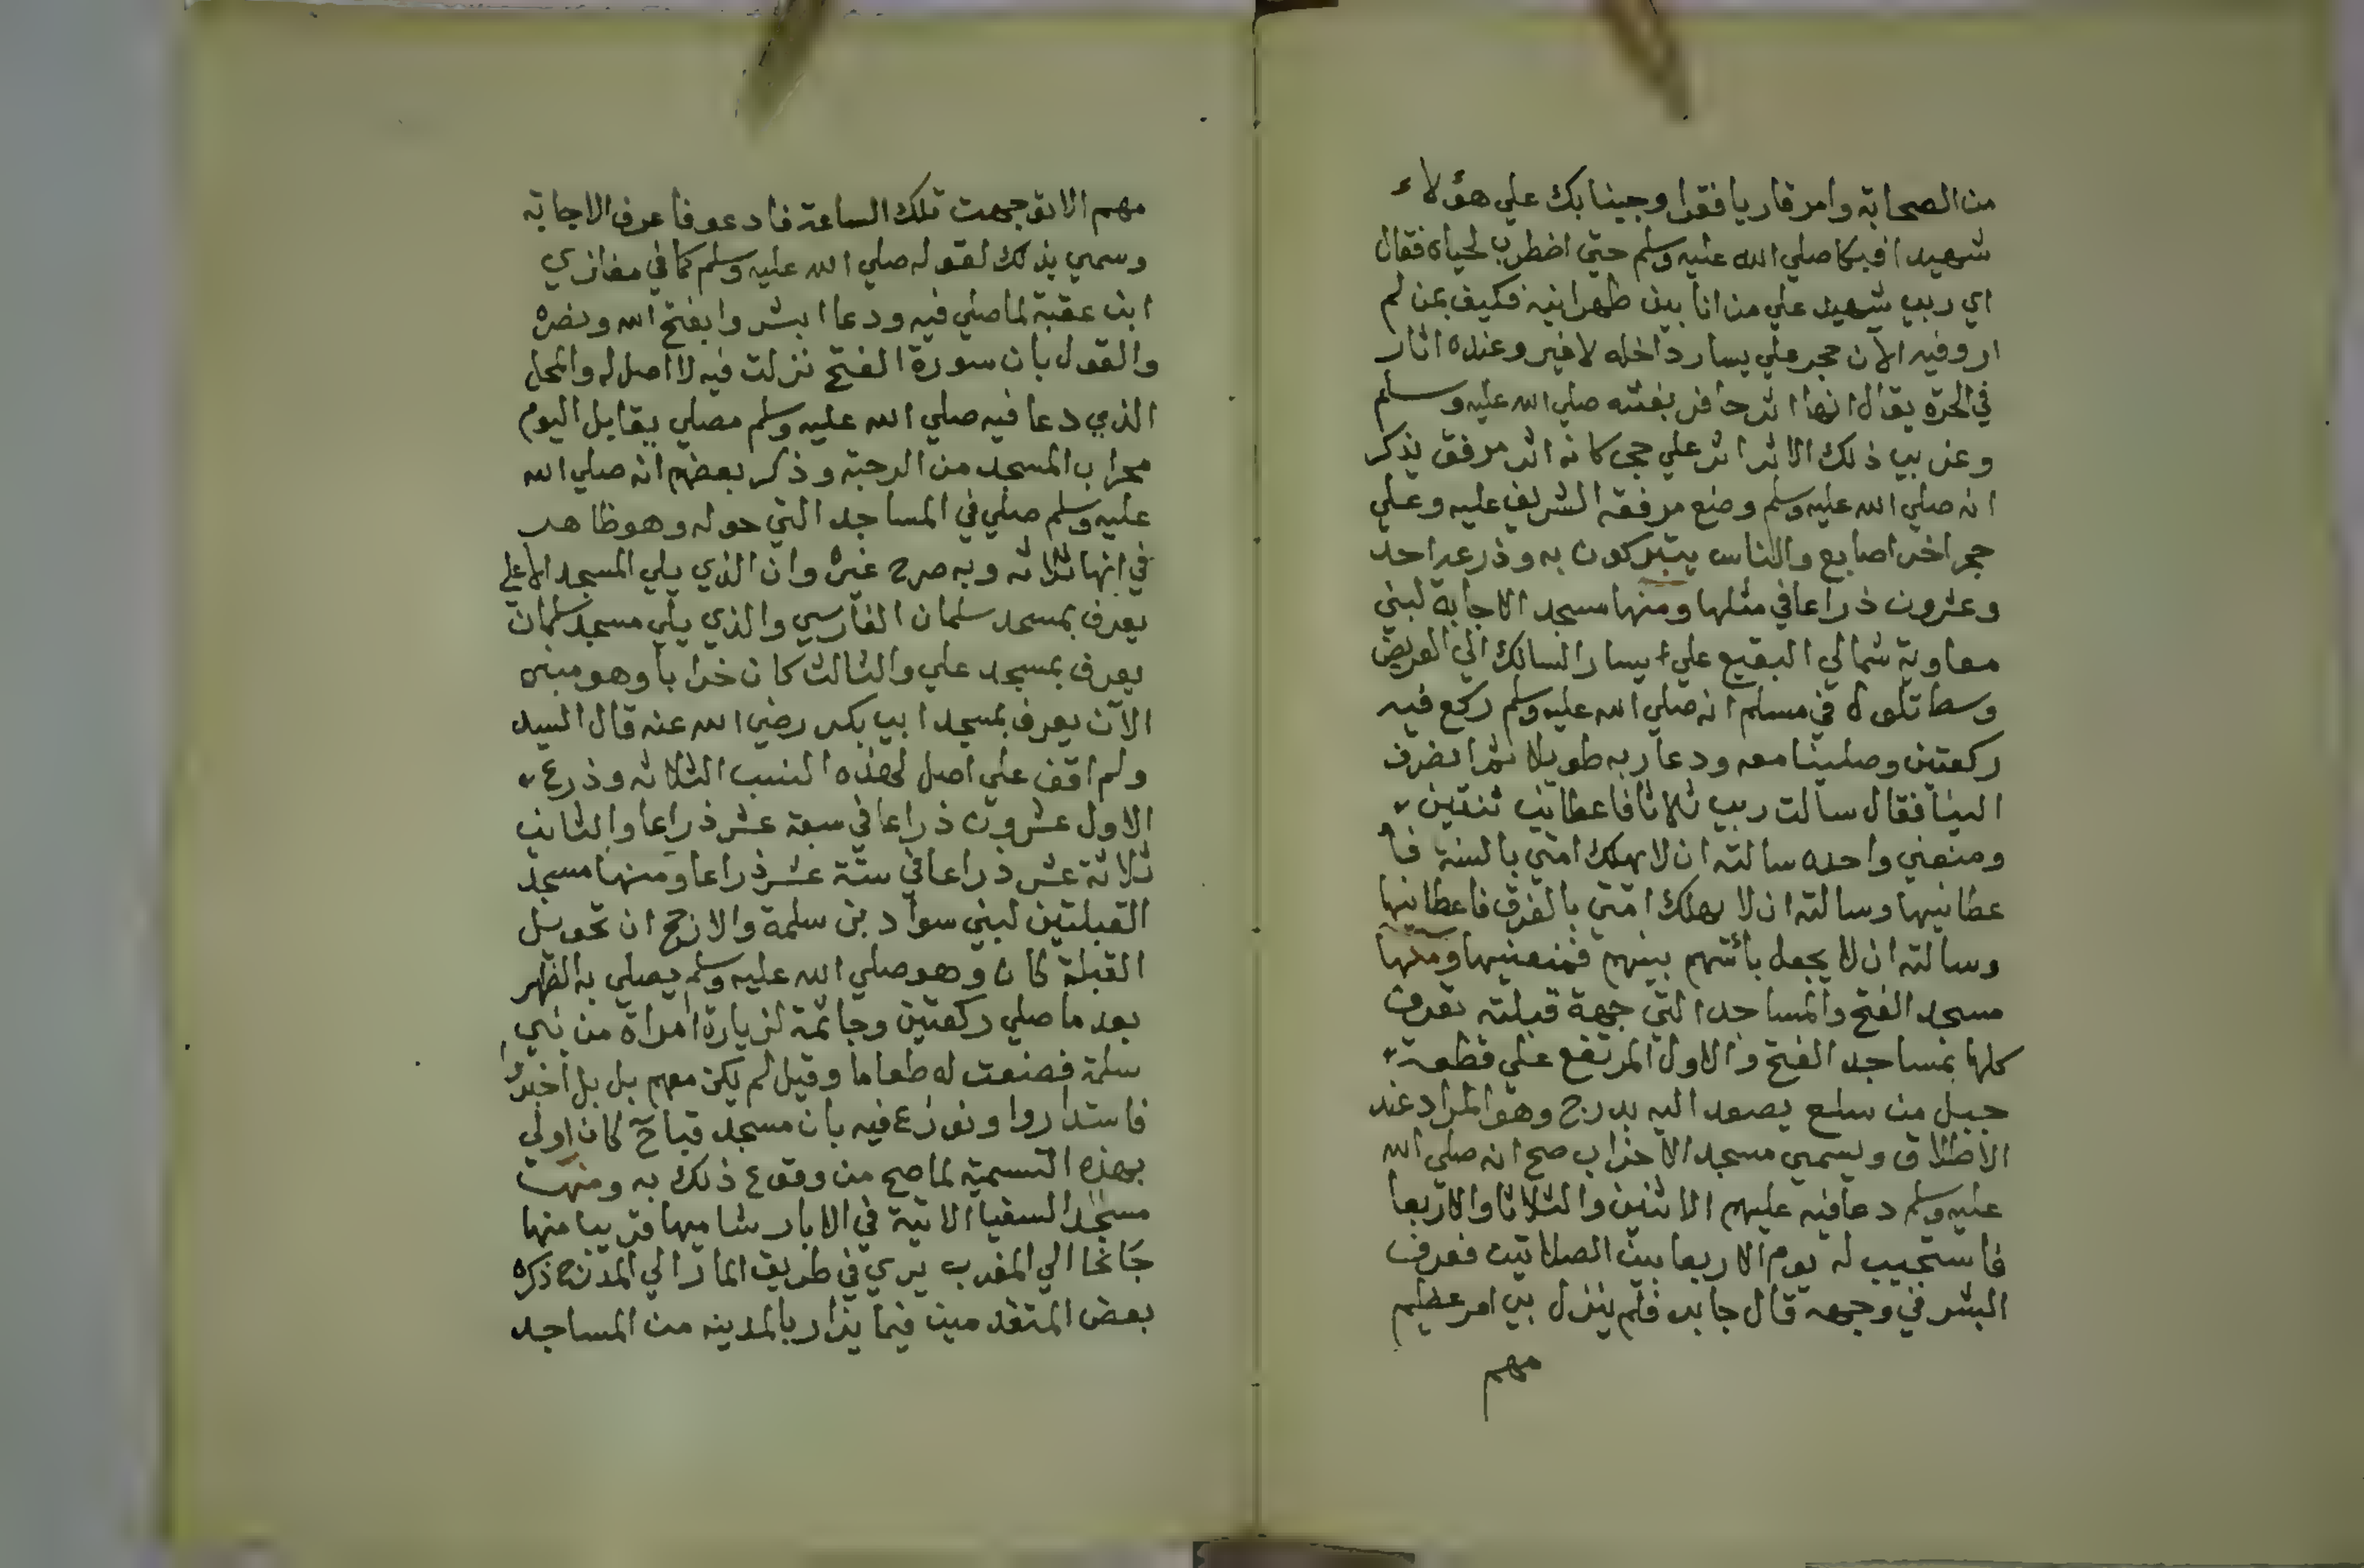 من الصحابة وامر قاريا فقرا وجينا بك علي هؤلاء
شهيدا فبكا صلي الله عليه وسلم حتي اضطرب لحياه فقال
اي رب شهيد علي من انا بين ظهرانيه فكيف بمن لم
ار وفيه الآن حجر علي يسار داخله لا غير وعنده اثار
في الحرة يقال انها اثر حافر بغلته صلي الله عليه وسلم
وغربي ذلك الاثر اثر علي حجر كانه اثر مرفق يذكر
انه صلي الله عليه وسلم وضع مرفقه الشريف عليه وعلي
حجر اخر اصابع والناس يتبركون به وذرعه احد
وعشرون ذراعا في مثلها ومنها مسجد الاجابة لبني
معاوية شمالي البقيع علي يسار السالك الي العريض
وسط تلول في مسلم انه صلي الله عليه وسلم ركع فيه
ركعتين وصلينا معه ودعا ربه طويلا ثم انصرف
الينا فقال سالت ربي ثلاثا فاعطاني ثنتين
ومنعني واحده سالته ان لا يهلك امتي بالسنة فا
عطانيها وسالته ان لا يهلك امتي بالغرق فاعطانيها
وسالته ان لا يجعل بأسهم بينهم فمنعنيها ومنها
مسجد الفتح والمساجد التي جهة قبلته تعرف
كلها بمساجد الفتح والاول المرتفع علي قطعة
جبل من سلع يصعد اليه بدرج وهو المراد عند
الاطلاق ويسمي مسجد الاحزاب صح انه صلي الله
عليه وسلم دعا فيه عليهم الاثنين والثلاثا والاربعا
فاستجيب له يوم الاربعا بين الصلاتين فعرف
البشر في وجهه قال جابر فلم ينزل بي امر عظيم
مهم
مهم الا توجهت تلك الساعة فادعو فاعرف الاجابة
وسمي بذلك لقوله صلي الله عليه وسلم كما في مغازي
ابن عقبة لما صلي فيه ودعا ابشروا بفتح الله ونصره
والقول بان سورة الفتح نزلت فيه لا اصل له والمحل
الذي دعا فيه صلي الله عليه وسلم مصلي يقابل اليوم
محراب المسجد من الرحبة وذكر بعضهم انه صلي الله
عليه وسلم صلي في المساجد التي حوله وهو ظاهر
في انها ثلاثه وبه صرح غيره وان الذي يلي المسجد الاعلي
يعرف بمسجد سلمان الفارسي والذي يلي مسجد سلمان
يعرف بمسجد علي والثالث كان خرابا وهو مبني
الآن يعرف بمسجد ابي بكر رضي الله عنه قال السيد
ولم اقف علي اصل لهذه النسب الثلاثه وذرع
الاول عشرون ذراعا في سبعة عشر ذراعا والثاني
ثلاثة عشر ذراعا في ستة عشر ذراعا ومنها مسجد
القبلتين لبني سواد بن سلمة والارجح ان تحويل
القبلة كان وهو صلي الله عليه وسلم يصلي به الظهر
بعد ما صلي ركعتين وجا ثمة لزيارة امراة من بني
سلمة فصنعت له طعاما وقيل لم يكن معهم بل بل اخبروا
فاستداروا ونوزع فيه بان مسجد قباح كان اولي
بهذه التسمية لما صح من وقوع ذلك به ومنها
مسجد السقيا الاتية في الابار شاميها قريبا منها
جانحا الي المغرب يري في طريق المار الي المدرج ذكره
بعض المتقدمين فيما يزار بالمدينه من المساجد